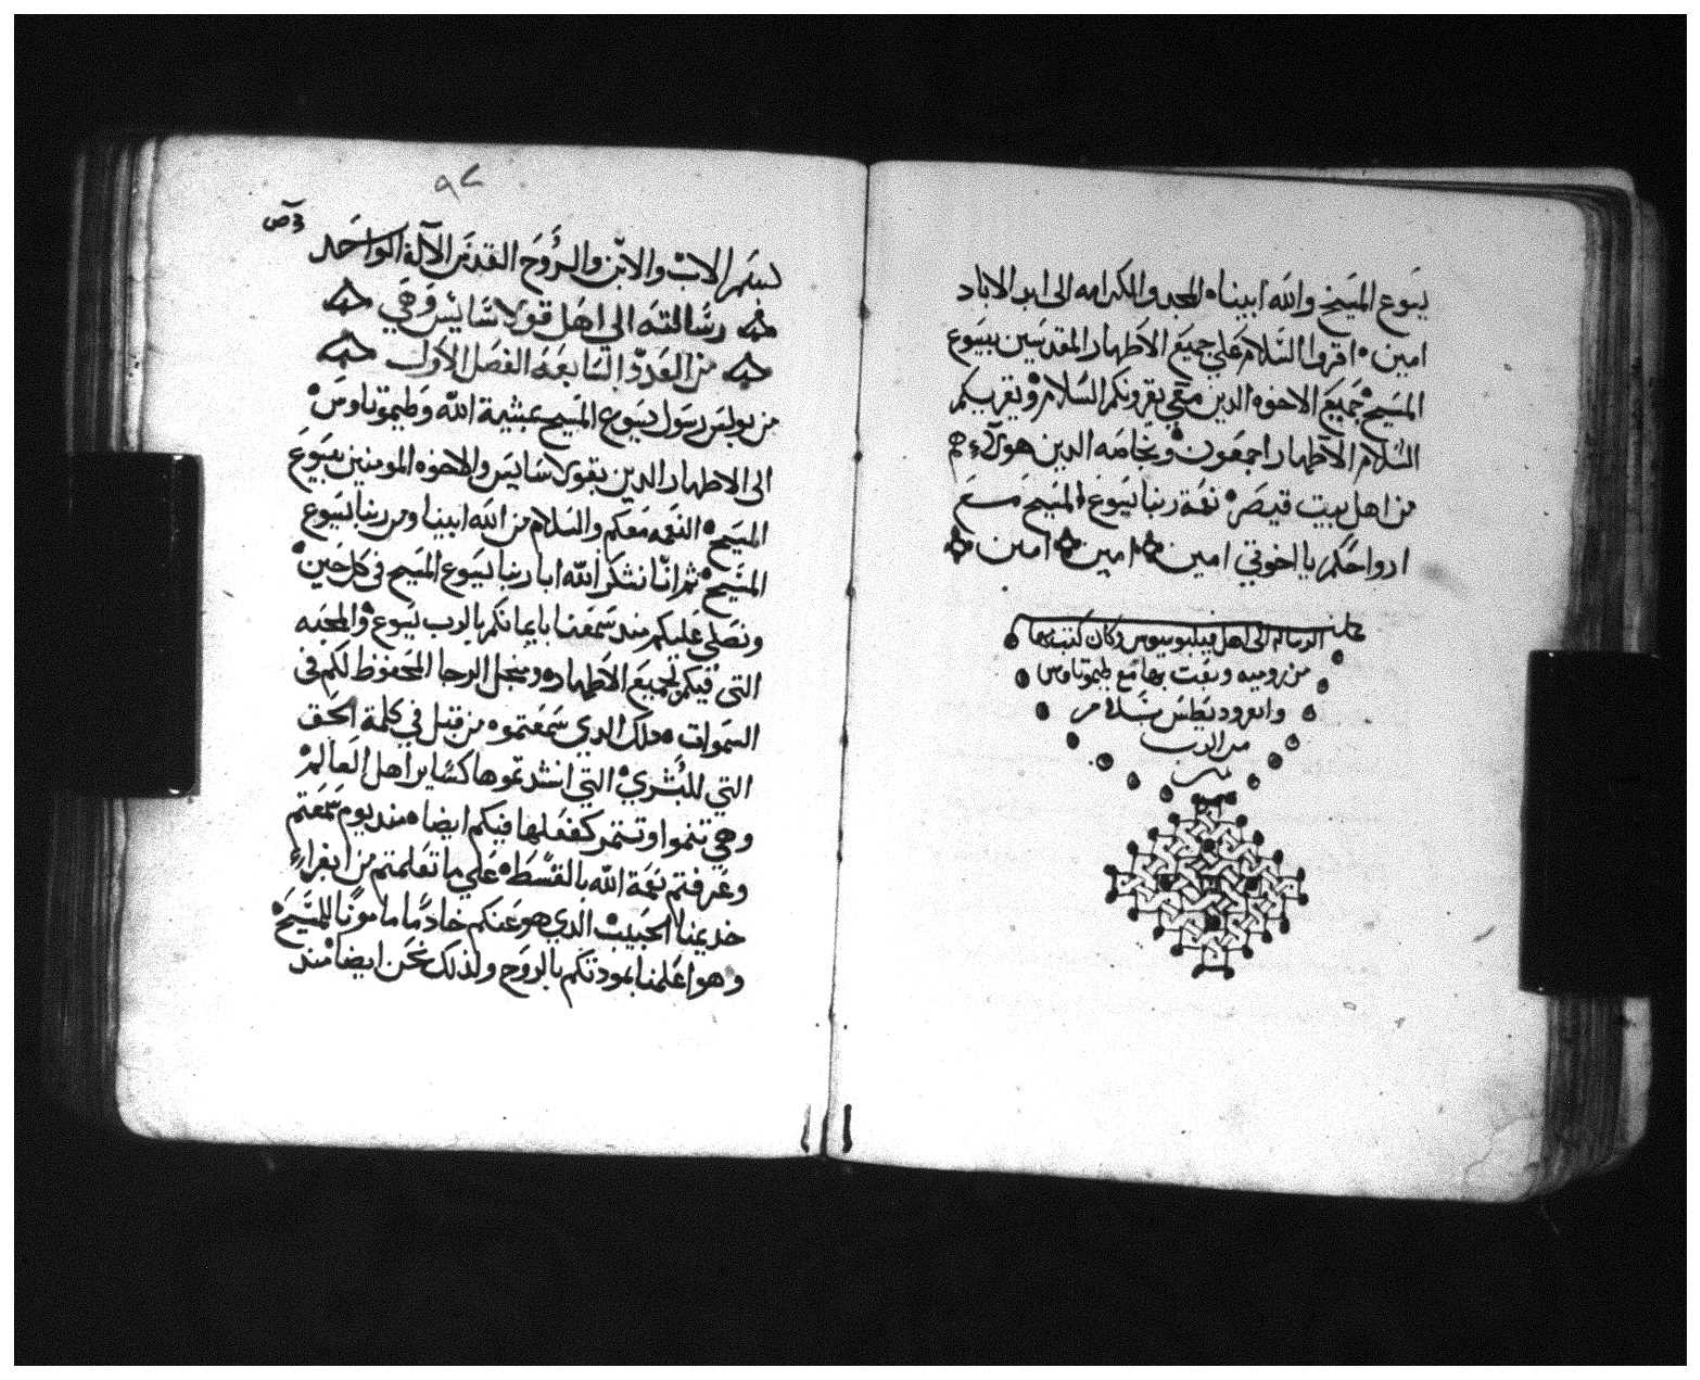 يسوع المسيح والله ابينا المجد والكرامه الى ابد الاباد
امين اقروا السلام علي جميع الاطهار المقدسين بيسوع
المسيح جميع الاخوه الدين معي يقرونكم السلام ويقريكم
السلام الاطهار اجمعون وبخاصه الدين هولاء هم
من اهل بيت قيصر نعمة ربنا يسوع المسيح مع
ارواحكم يا اخوتي امين امين امين
كملت الرساله الى اهل فيلبوسيوس وكان كتب بها
من روميه وبعت بها مع طيموتاوس
وابفروديطس بسلام
من الرب
امين
٩٧
بسم الاب والابن والروح القدس الاله الواحد
رسالته الي اهل قولاسايس وهي
من العدد السابعه الفصل الاول
من بولس رسول يسوع المسيح بمشية الله وطيموتاوس
الى الاطهار الدين بقولاسايس والاخوه المومنين بيسوع
المسيح النعمه معكم والسلام من الله ابينا ومن ربنا يسوع
المسيح ثم اننا نشكر الله ابا ربنا يسوع المسيح في كل حين
ونصلي عليكم مند سمعنا بايمانكم بالرب يسوع والمحبه
التى فيكم لجميع الاطهار من اجل الرجا المحفوظ لكم في
السموات دلك الدي سمعتموه من قبل في كلمة الحق
التي للبشري التي انشدتموها كساير اهل العالم
وهي تنموا وتستمر كفعلها فيكم ايضا مند يوم سمعتم
وعرفتم نعمة الله بالقسط علي ما تعلمتم من ابفراء
خديمنا الحبيب الدي هو عنكم خادما مامونا للمسيح
وهو اعلمنا بمودتكم بالروح ولذلك نحن ايضا مند